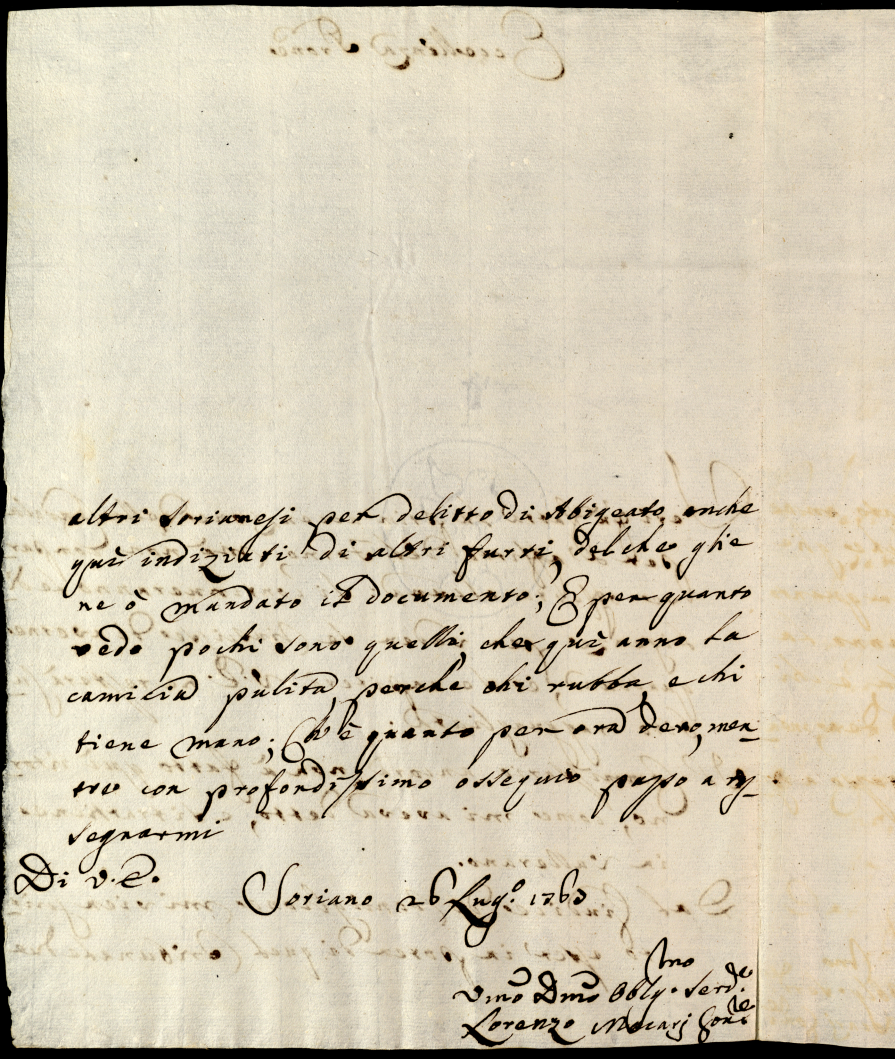 altri Sorianesi per delitto di Abigeato, anche
quì indiziati di altri furti, del che glie
ne ò mandato il documento; E per quanto
vedo pochi sono quelli, che quì anno la
camicia pulita, perche chi rubba, e chi
tiene mano; Ch'è quanto per ora devo, men_
tre con profondissimo ossequio passo a ras_
segnarmi
Di V. E.
Soriano 26 Lug.o 1763
Vmo Dmo Obblg.mo Serd.re
Lorenzo